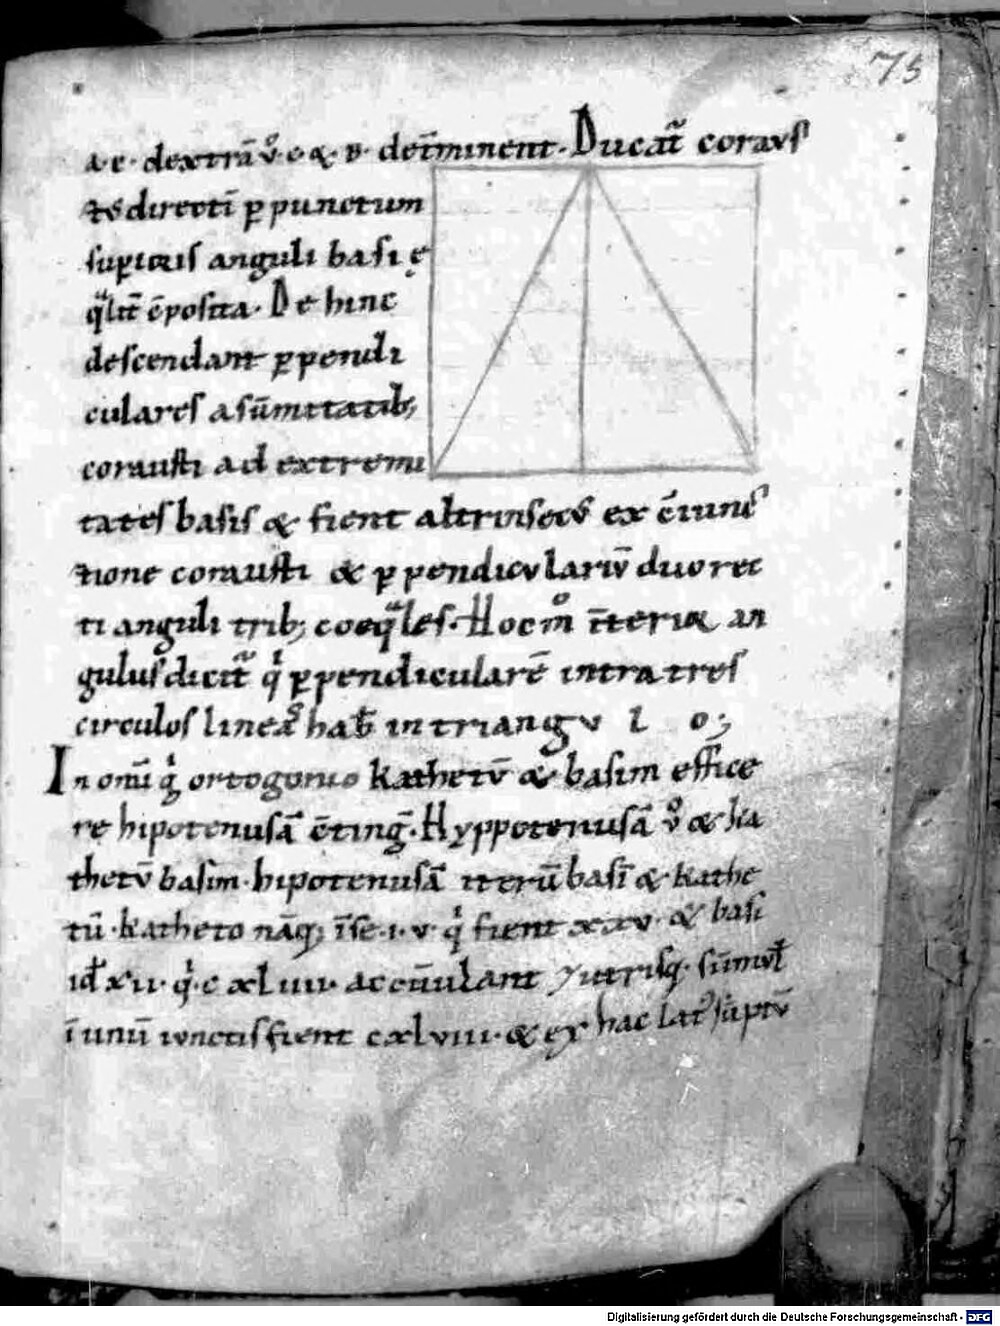 75
a·e· dextrā ṽ·e·& B· det̄minent· Ducat̃ coraus
tꝰ directī p̱ punctum
sup̱ioris anguli basi ę
q̃lit̃ ēposita· De hinc
descendant p̱pendi
culares a sūmitatib;
corausti ad extremi
tates basis & fient altrinsecꝰ ex c̄iunc
tione corausti & p̱pendiculariū duo rec
ti anguli trib; coeq̃les· Hoc m̊ īteriꝰ an
gulus dicit̃ q̇ p̱pendicularē intra tres
circulos lineaꝝ hab̄ in triangu l o;
In omi q̇ ortogonio Kathetū & basim effice
re hipotenusā c̄ting̃· Hyppotenusā v̊ & ka
thetū basim· hipotenusā iterū basī & Kathe
tū· Katheto nāq; īse·i·v· q̇ fient xxv· & basi
id̄ xii· q̇·c xl iiii· accūulant ȳ utrisq· sūmul̄
ī unū iunctis fient cxlviiii· & ex hac lat̃ sūptū
Digitalisierung gefördert durch die Deutsche Forschungsgemeinschaft - DFG